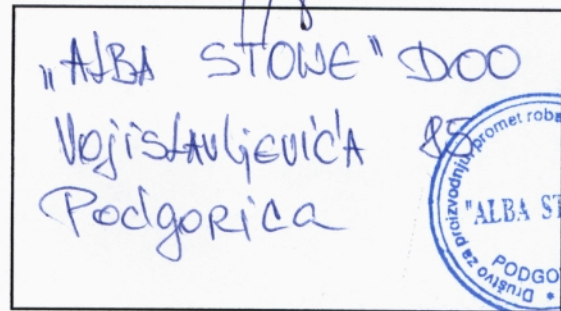 „ALBA STONE" DOO
Vojislavljevića 85
Podgorica
Društvo za proizvodnju, promet roba
"ALBA ST
PODGO